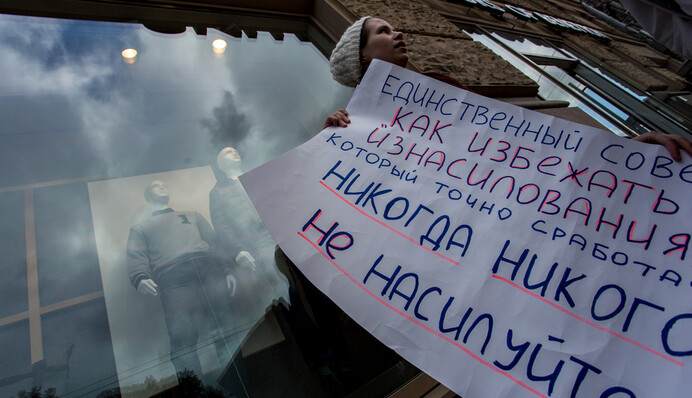 ЕДИНСТВЕННЫЙ СОВЕ
"КАК ИЗБЕЖАТЬ
ИЗНАСИЛОВАНИЯ
КОТОРЫЙ ТОЧНО СРАБОТА
НИКОГДА НИКОГО
НЕ НАСИЛУЙТЕ